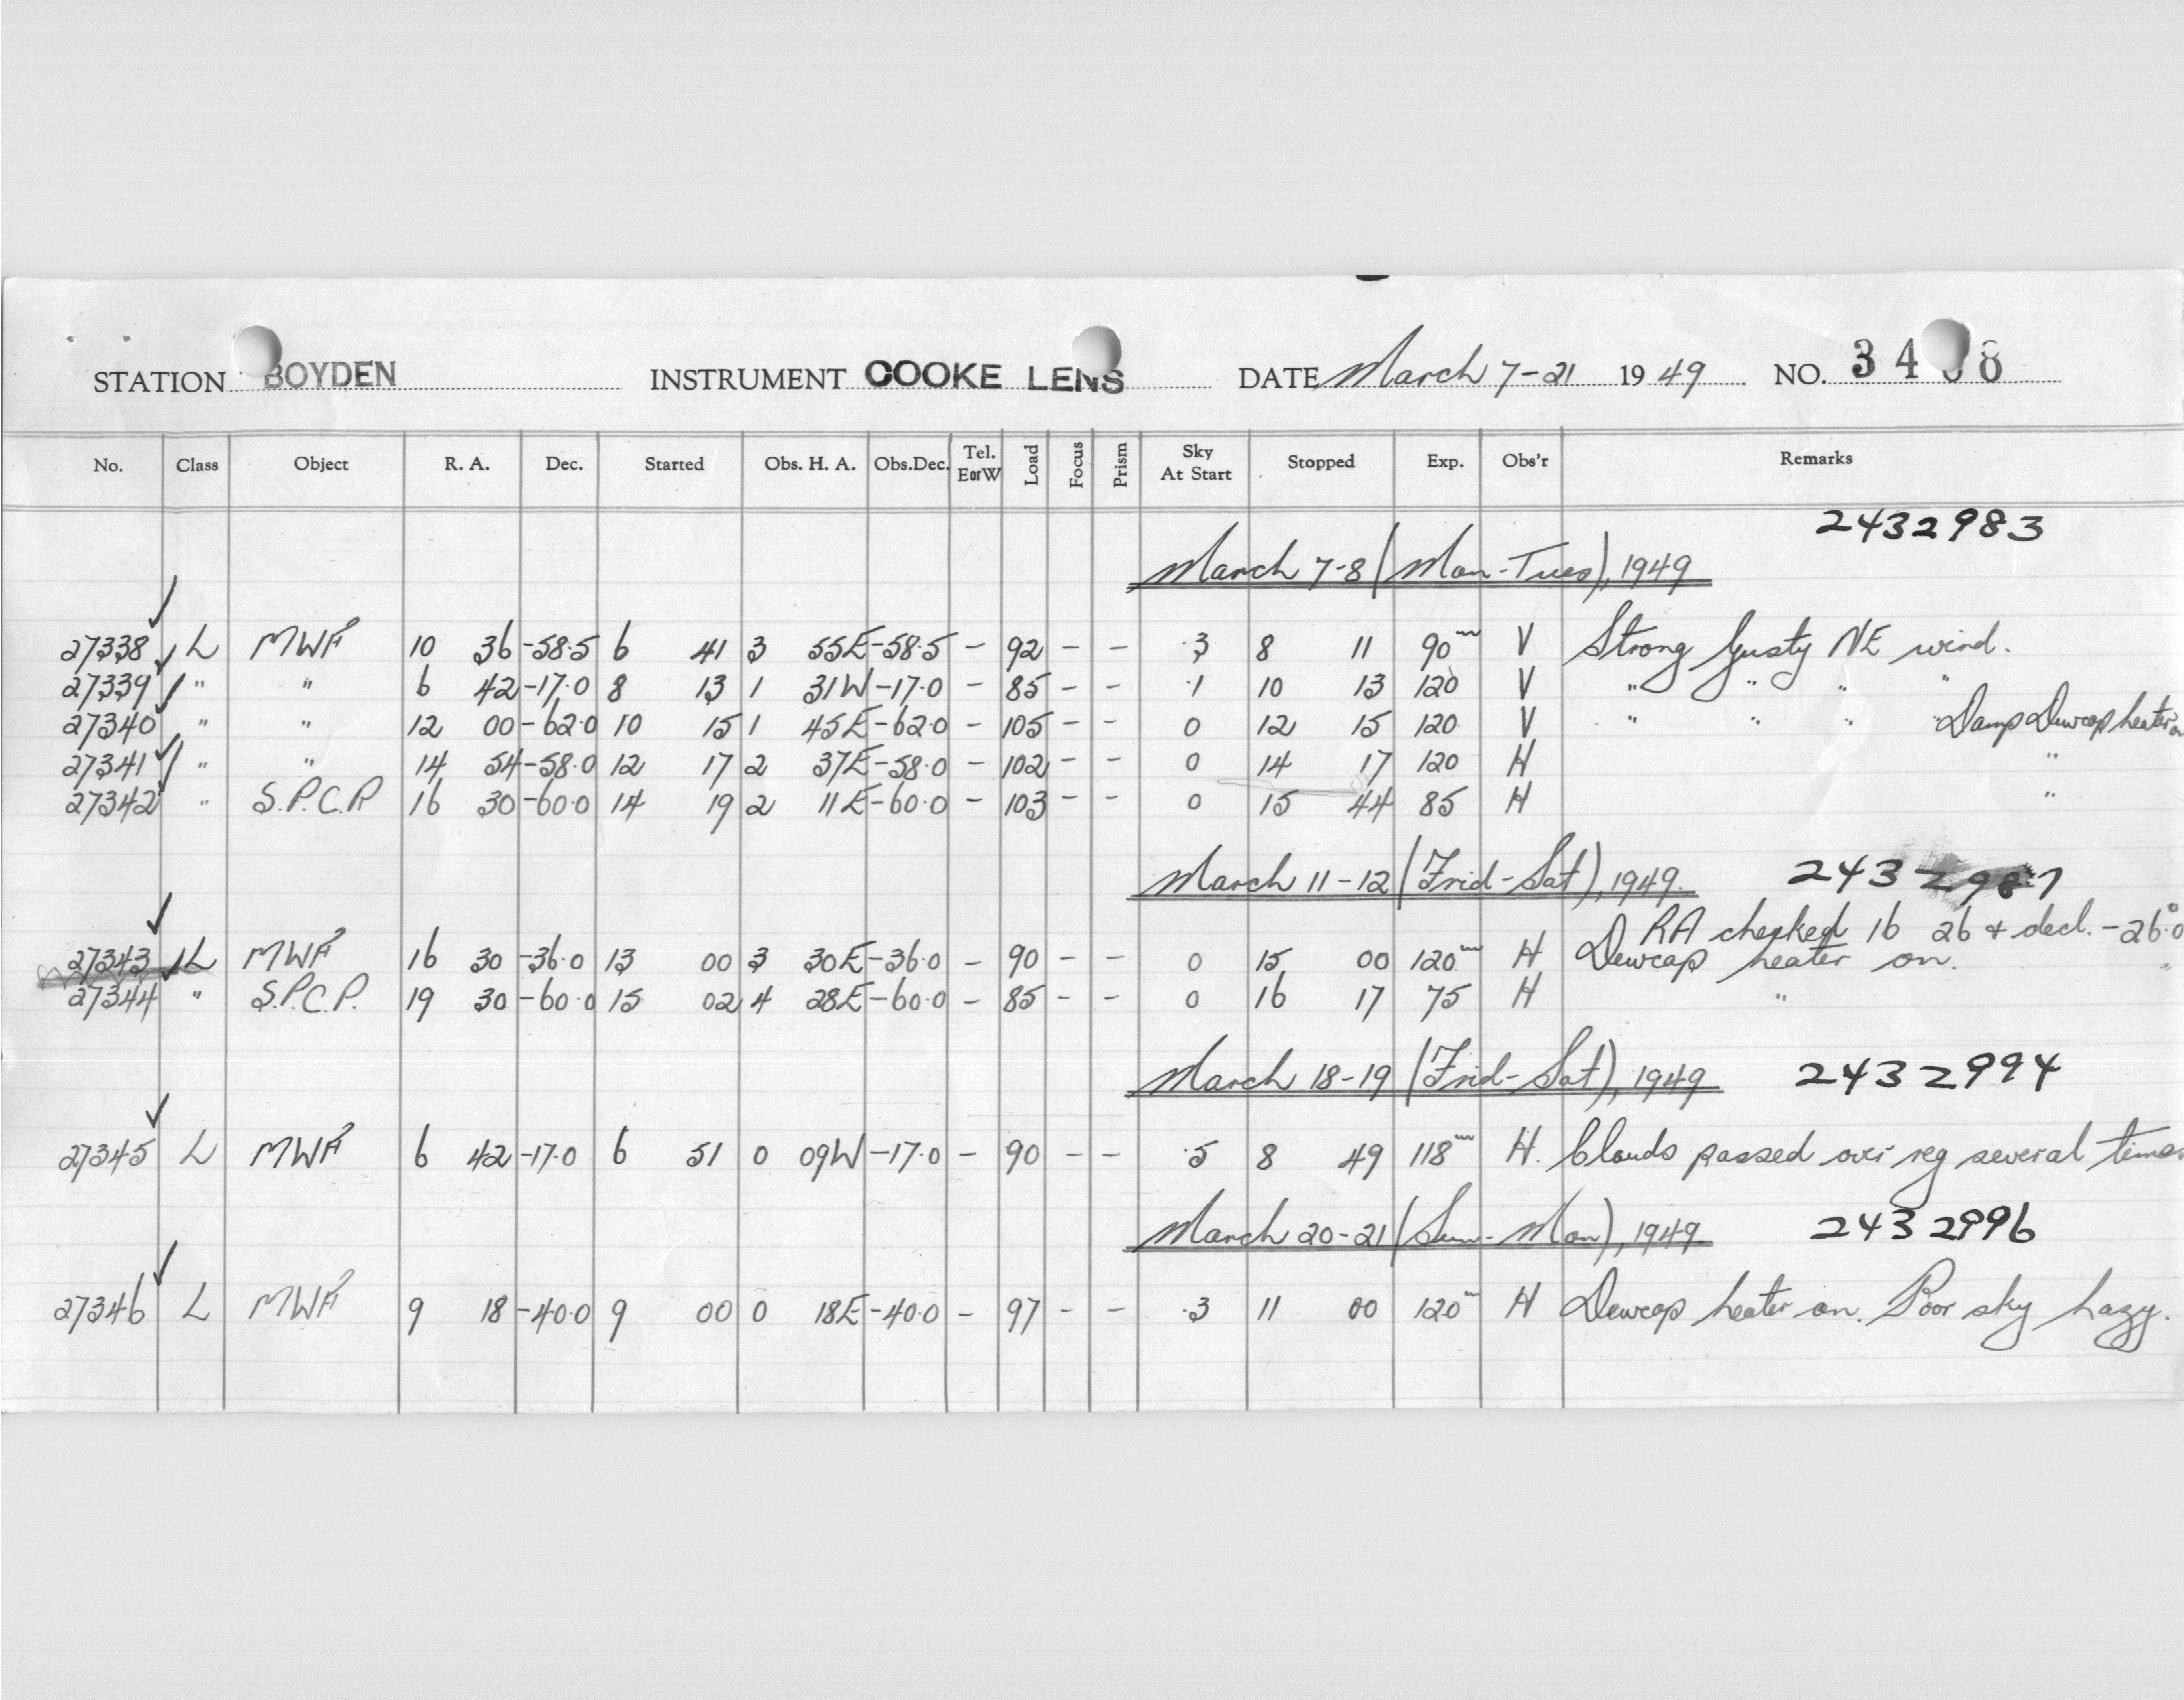 STATION BOYDEN INSTRUMENT COOKE LENS DATE March 7-21 1949 NO. 34 8
No. Class Object R. A. Dec. Started Obs. H. A. Obs. Dec. Tel. E or W Load Focus Prism Sky At Start Stopped Exp. Obs'r Remarks
2432983
March 7-8 (Mon-Tues), 1949
27338 L MWF 10 36 -58.5 6 41 3 55E -58.5 - 92 - - .3 8 11 90m V Strong Gusty NE wind.
27339 " " 6 42 -17.0 8 13 1 31W -17.0 - 85 - - .1 10 13 120 V " " " "
27340 " " 12 00 -62.0 10 15 1 45E -62.0 - 105 - - 0 12 15 120 V " " " " Damp Dewcap heater on
27341 " " 14 54 -58.0 12 17 2 37E -58.0 - 102 - - 0 14 17 120 H "
27342 " S.P.C.R 16 30 -60.0 14 19 2 11E -60.0 - 103 - - 0 15 44 85 H "
March 11-12 (Frid-Sat), 1949. 2432987
RA checked 16 26 & decl. -26.0°
27343 L MWF 16 30 -36.0 13 00 3 30E -36.0 - 90 - - 0 15 00 120m H Dewcap heater on. "
27344 " S.P.C.P. 19 30 -60.0 15 02 4 28E -60.0 - 85 - - 0 16 17 75 H "
March 18-19 (Frid-Sat), 1949 2432994
27345 L MWF 6 42 -17.0 6 51 0 09W -17.0 - 90 - - .5 8 49 118m H. Clouds passed over reg several times
March 20-21 (Sun-Mon), 1949 2432996
27346 L MWF 9 18 -40.0 9 00 0 18E -40.0 - 97 - - .3 11 00 120m H Dewcap heater on. Poor sky hazy.